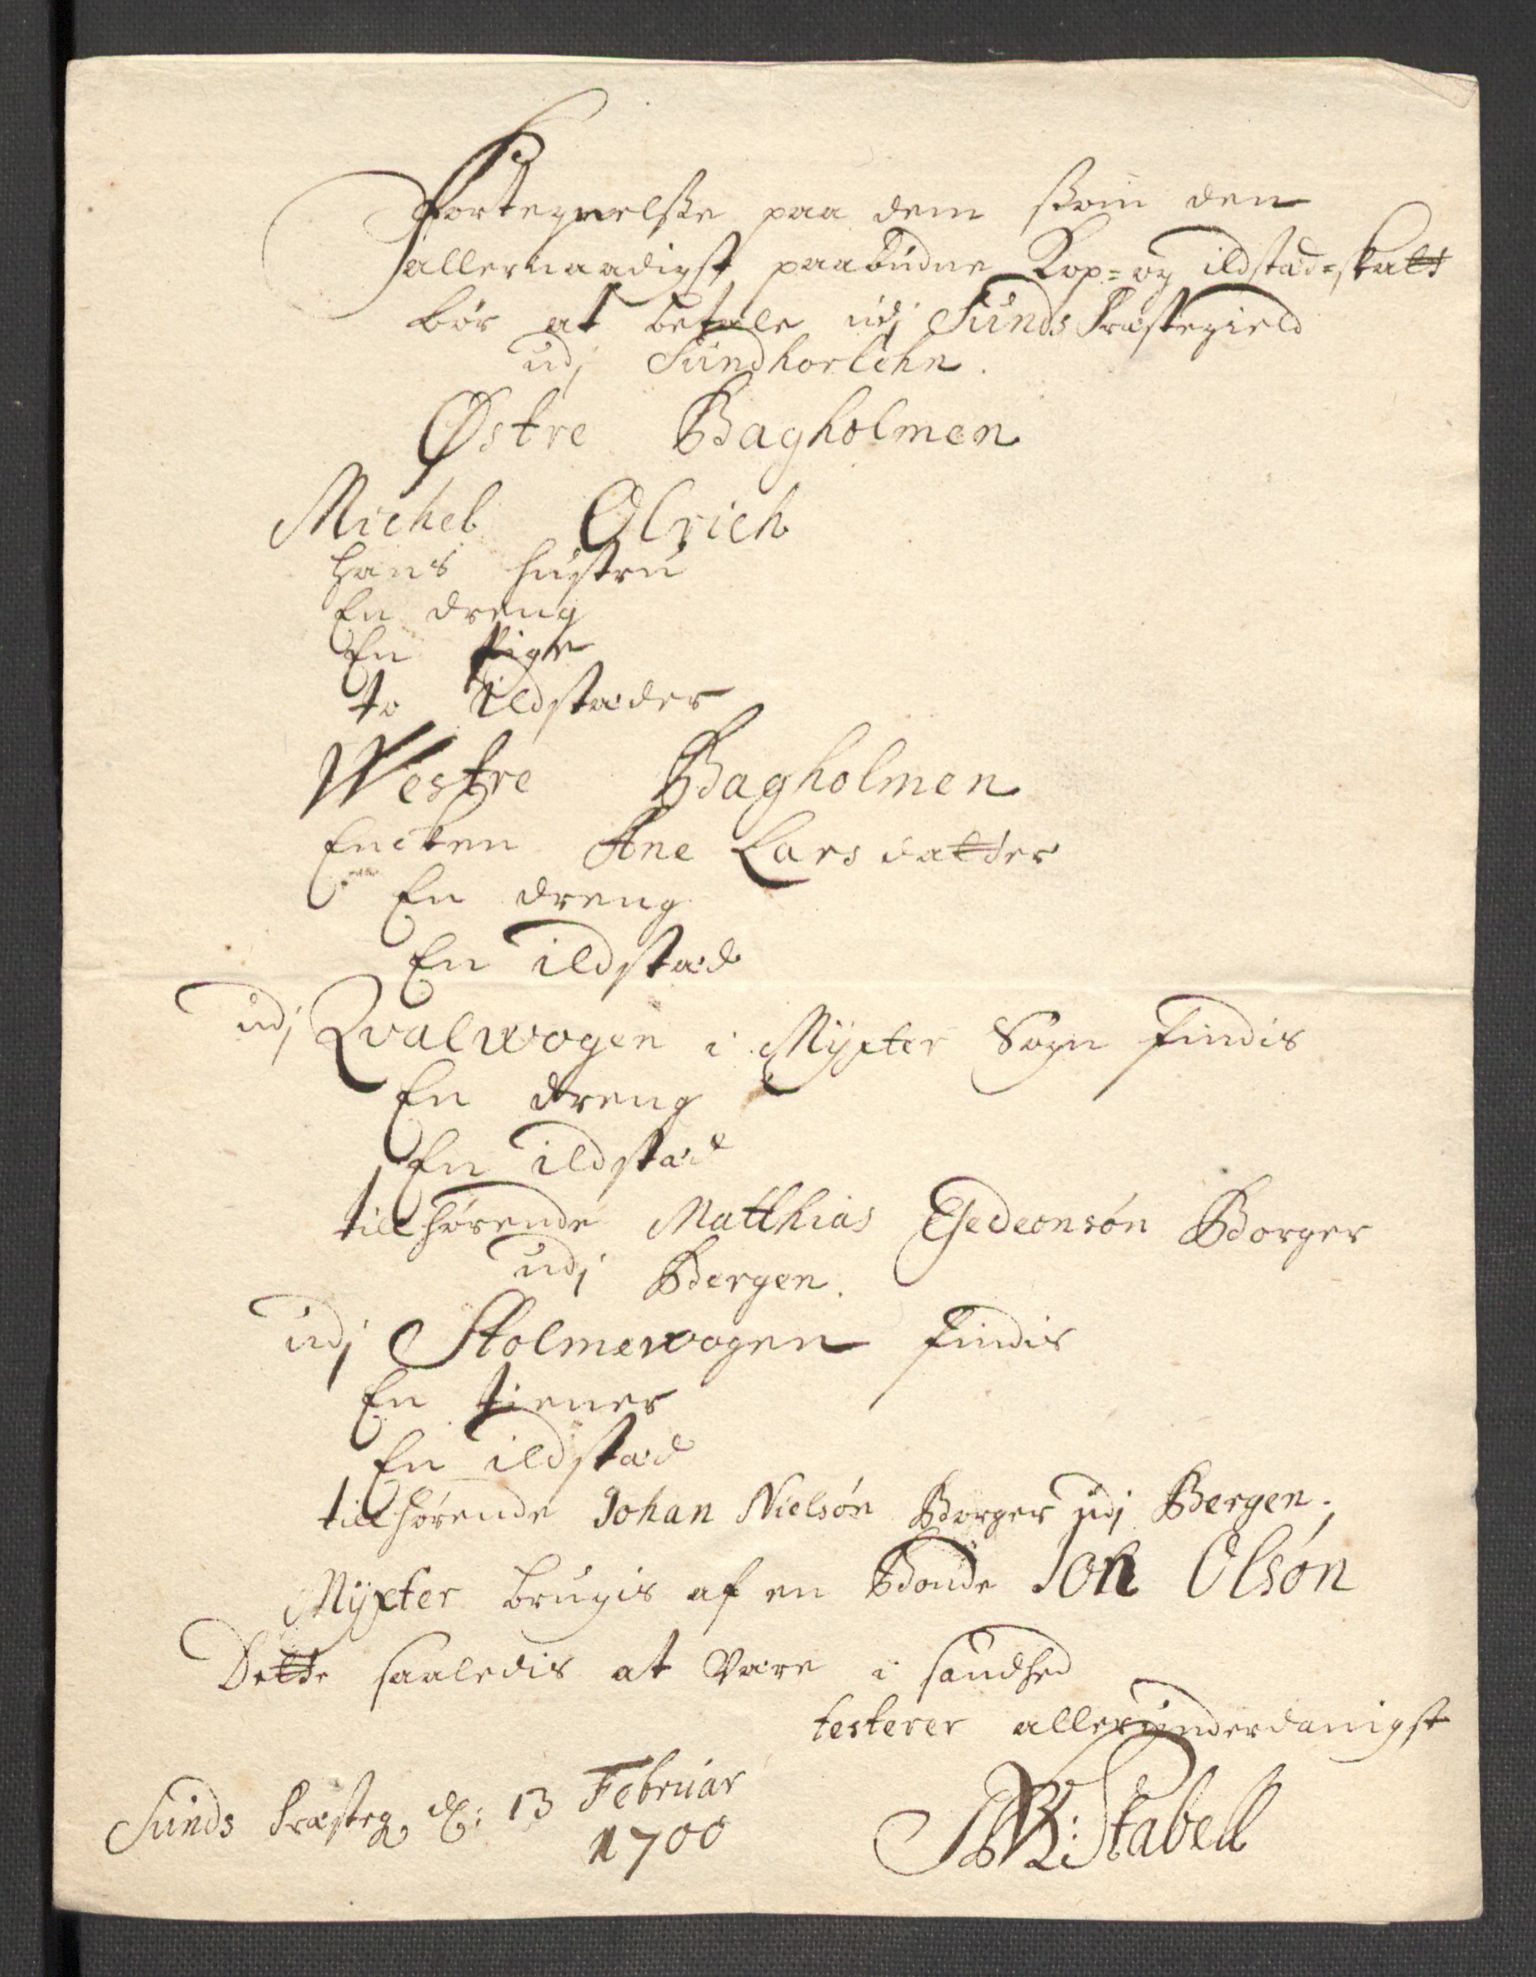 Fortegnelsse paa dem ssom den
allernaadigst paabudne Kop= og ildstad=skatt
bør at betale udj Sunds Præstegield
udj Sundhorlehn.
Østre Bagholmen
Michel Olrich
hans hustru
En dreng
En Pige
to Ildstæder
Westre Bagholmen
Encken Ane Larsdatter
En dreng
En ildstæd
udj Qvalwogen i Myxter Sogn findis
En dreng
En ildstæd
tillhørende Matthias Gedeonsøn Borger
udj Bergen.
udj Stolmewogen findis
En tiener
En ildstæd
tillhørende Johan Nielsøn Borger udj Bergen.
Myxter brugis af en Bonde Jon Olsøn
Dette saaledis at være i sandhed
testerer allerunderdanigst
Sunds Præsteg d: 13 Februar
1700
Stabell